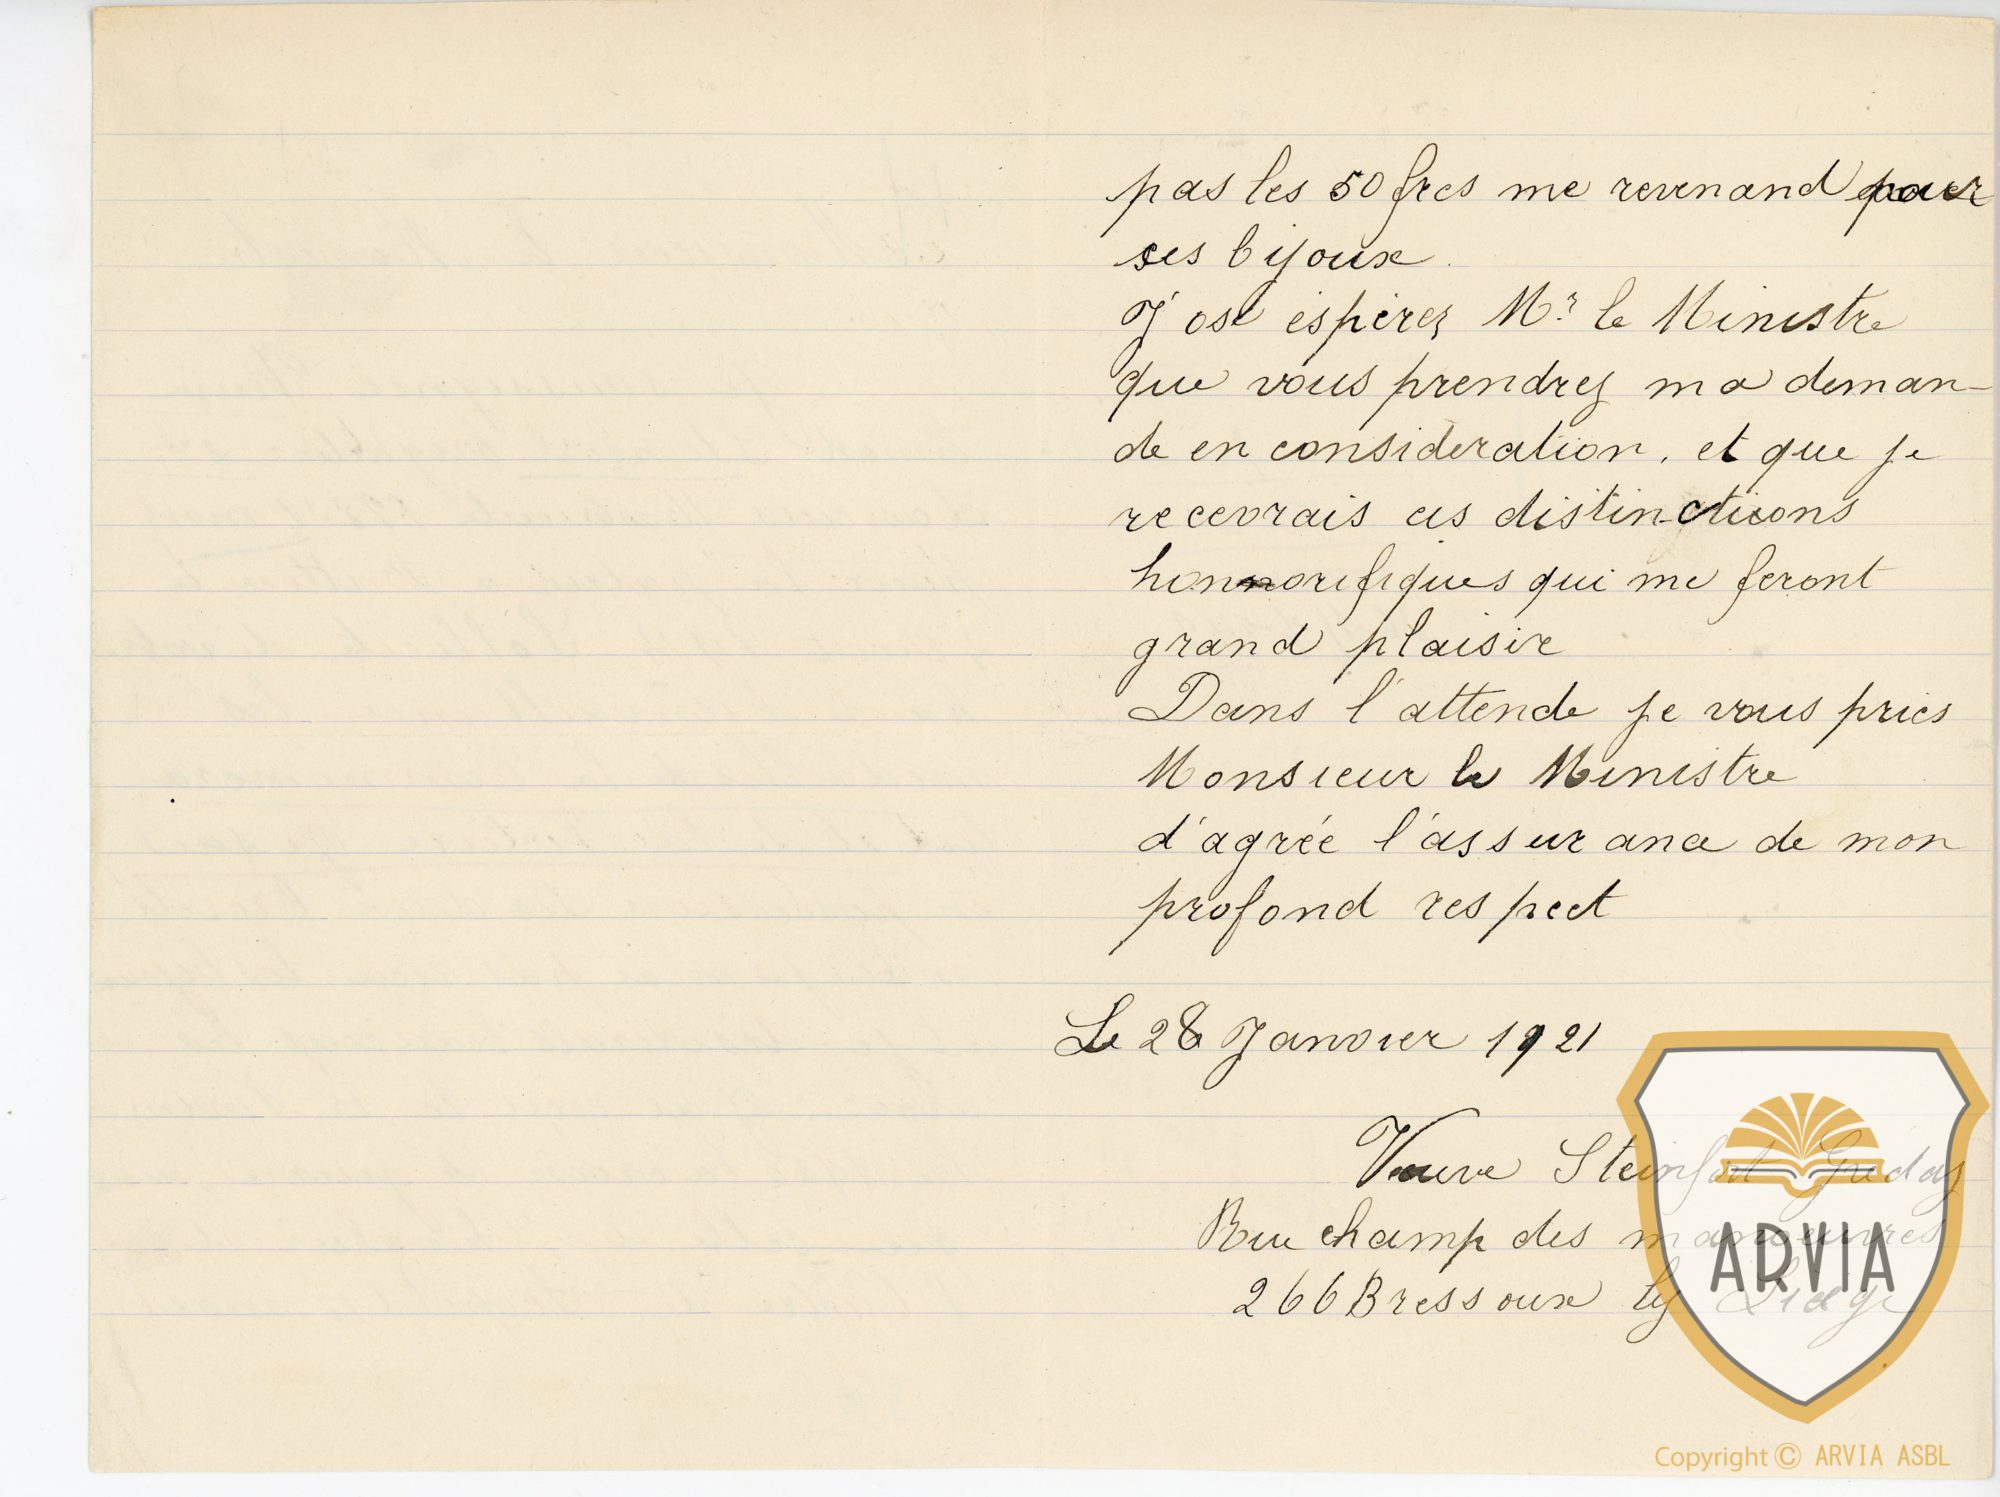 pas les 50 frcs me revenand pour
ses bijoux.
J'ose espérez Mr le Ministre
que vous prendrez ma deman-
de en consideration, et que je
recevrais ces distinctions
honnorifiques qui me feront
grand plaisir
Dans l'attende je vous pries
Monsieur le Ministre
d'agrée l'assurance de mon
profond respect
Le 28 Janvier 1921
Veuve Steinfort
Rue champ des manoeuvres
266 Bressoux lz Liége
ARVIA
Copyright © ARVIA ASBL